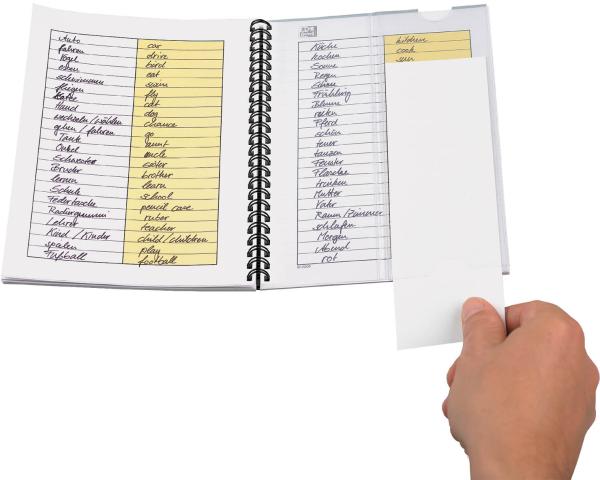 Auto car
fahren drive
Vogel bird
essen eat
schwimmen swim
fliegen fly
Katze cat
Hund dog
wechseln/wählen chance
gehen / fahren go
Tante aunt
Onkel uncle
Schwester sister
Bruder brother
lernen learn
Schule school
Federtasche pencil case
Radiergummi ruber
Lehrer teacher
Kind / Kinder child/children
spielen play
Fußball football
Küche kitchen
kochen cook
Sonne sun
Regen
Frühling
Blume
reiten
Pferd
schön
teuer
tanzen
Fenster
Flasche
trinken
Mutter
Vater
Raum/Zimmer
schlafen
Morgen
Abend
rot